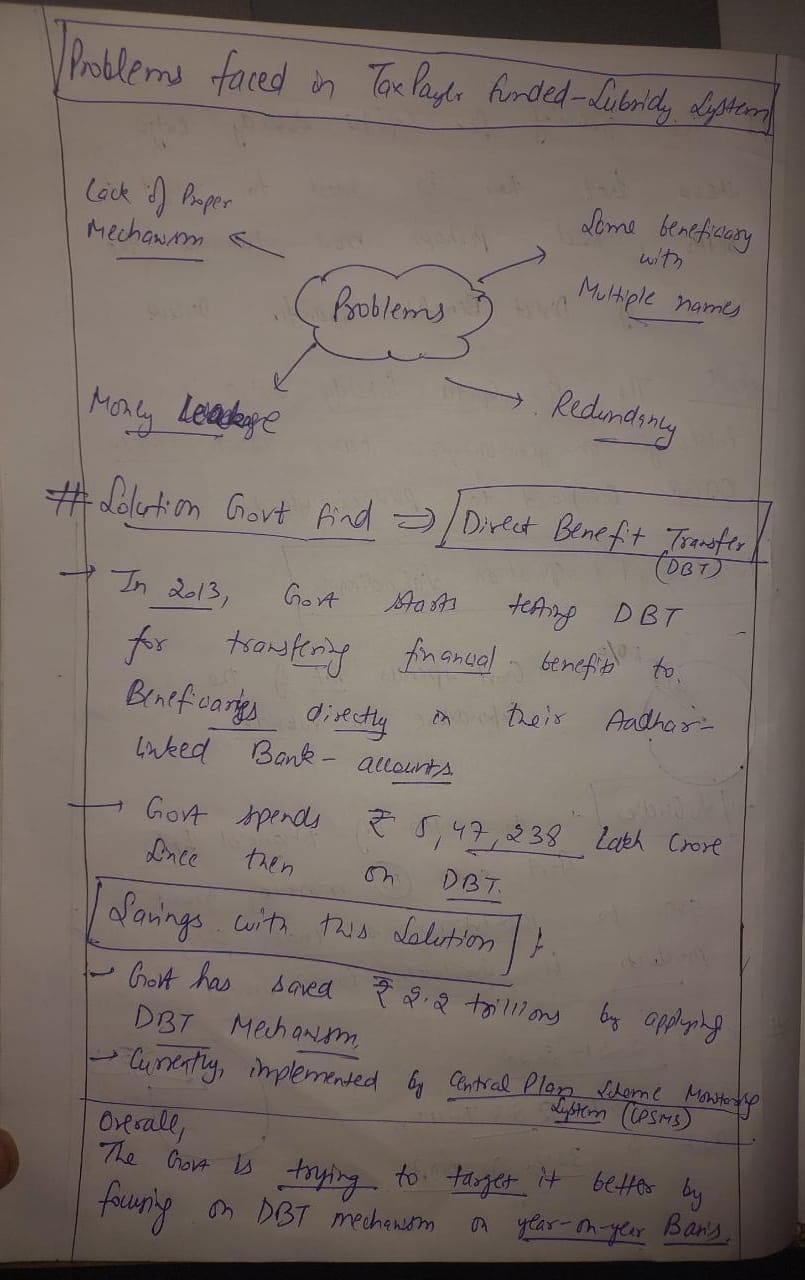 Problems faced in Tax Payer funded-Subsidy System
Lack of Proper
Mechanism
Same beneficiary
with
Multiple names
Problems
Money Leakage
Redundancy
# Solution Govt find ⇒ Direct Benefit Transfer
(DBT)
→ In 2013, Govt starts testing DBT
for transfering financial benefits to
Beneficiaries directly in their Aadhar-
linked Bank-accounts
→ Govt spends ₹ 5,47,238 Lakh Crore
Since then on DBT.
Savings with this Solution
→ Govt has saved ₹ 2.2 trillions by applying
DBT Mechanism.
→ Currently, implemented by Central Plan Scheme Monitoring
System (CPSMS)
Overall,
The Govt is trying to target it better by
focusing on DBT mechanism on year-on-year Basis.